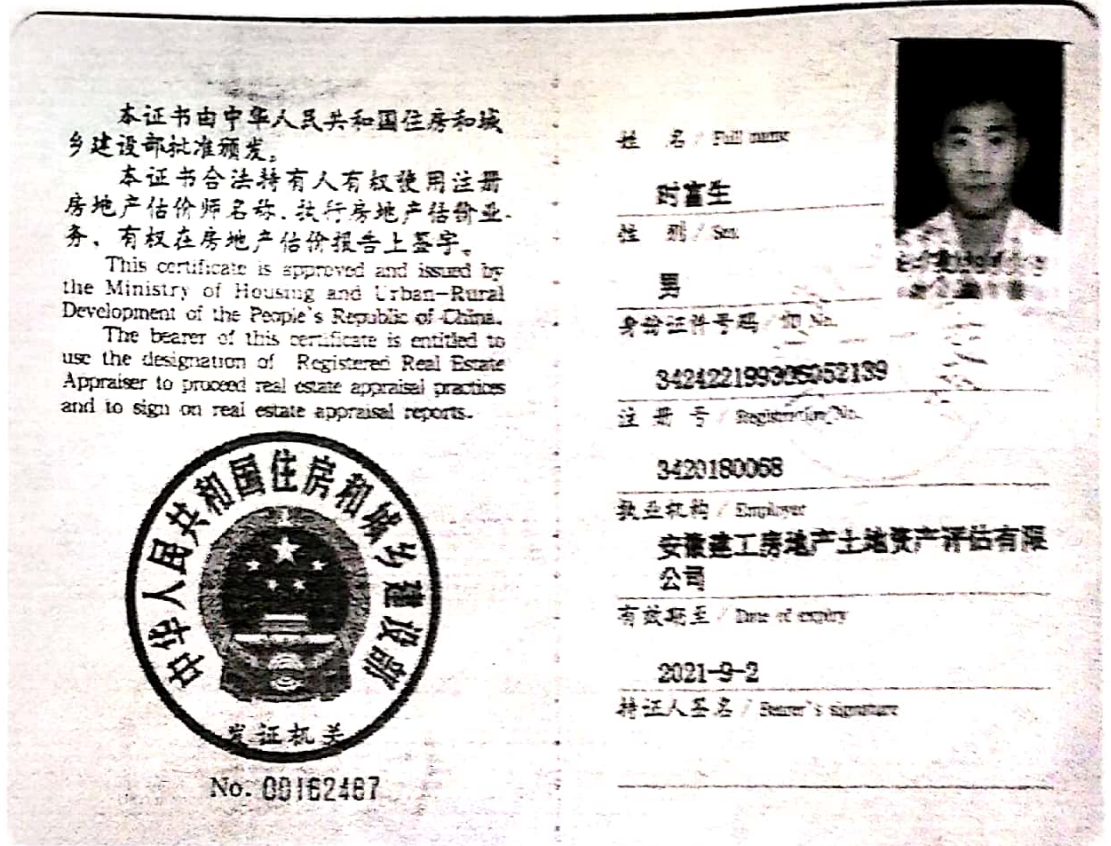 本证书由中华人民共和国住房和城
乡建设部批准颁发。
本证书合法持有人有权使用注册
房地产估价师名称、执行房地产估价业
务、有权在房地产估价报告上签字。
This certificate is approved and issued by
the Ministry of Housing and Urban-Rural
Development of the People's Republic of China.
The bearer of this certificate is entitled to
use the designation of Registered Real Estate
Appraiser to proceed real estate appraisal practices
and to sign on real estate appraisal reports.
中华人民共和国住房和城乡建设部
发证机关
No. 00162487
姓 名 / Full name
时富生
性 别 / Sex
男
身份证件号码 / ID No.
342422199305052139
注 册 号 / Registration No.
3420180068
执业机构 / Employer
安徽建工房地产土地资产评估有限
公司
有效期至 / Date of expiry
2021-9-2
持证人签名 / Bearer's signature